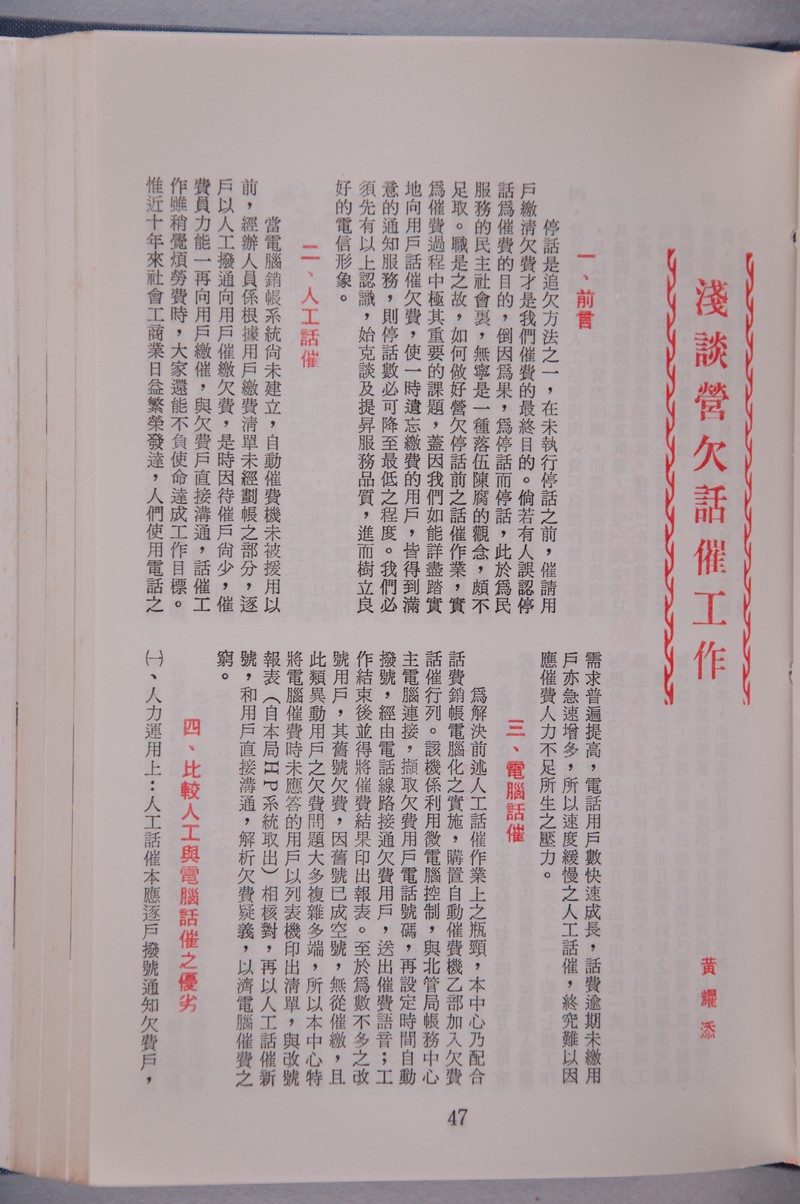 淺談營欠話催工作
黃耀添
一、前言
停話是追欠方法之一，在未執行停話之前，催請用
戶繳清欠費才是我們催費的最終目的。倘若有人誤認停
話爲催費的目的，倒因爲果，爲停話而停話，此於爲民
服務的民主社會裏，無寧是一種落伍陳腐的觀念，頗不
足取。職是之故，如何做好營欠停話前之話催作業，實
爲催費過程中極其重要的課題，蓋因我們如能詳盡踏實
地向用戶話催欠費，使一時遺忘繳費的用戶，皆得到滿
意的通知服務，則停話數必可降至最低之程度。我們必
須先有以上認識，始克談及提昇服務品質，進而樹立良
好的電信形象。
二、人工話催
當電腦銷帳系統尙未建立，自動催費機未被援用以
前，經辦人員係根據用戶繳費清單未經劃帳之部分，逐
戶以人工撥通向用戶催繳欠費，是時因待催戶尙少，催
費員力能一再向用戶繳催，與欠費戶直接溝通，話催工
作雖稍覺煩勞費時，大家還能不負使命達成工作目標。
惟近十年來社會工商業日益繁榮發達，人們使用電話之
需求普遍提高，電話用戶數快速成長，話費逾期未繳用
戶亦急速增多，所以速度緩慢之人工話催，終究難以因
應催費人力不足所生之壓力。
三、電腦話催
爲解決前述人工話催作業上之瓶頸，本中心乃配合
話費銷帳電腦化之實施，購置自動催費機乙部加入欠費
話催行列。該機係利用微電腦控制，與北管局帳務中心
主電腦連接，擷取欠費用戶電話號碼，再設定時間自動
撥號，經由電話線路接通欠費用戶，送出催費語音；工
作結束後並得將催費結果印出報表。至於爲數不多之改
號用戶，其舊號欠費，因舊號已成空號，無從催繳，且
此類異動用戶之欠費問題大多複雜多端，所以本中心特
將電腦催費時未應答的用戶以列表機印出清單，與改號
報表（自本局HP系統取出）相核對，再以人工話催新
號，和用戶直接溝通，解析欠費疑義，以濟電腦催費之
窮。
四、比較人工與電腦話催之優劣
㈠、人力運用上：人工話催本應逐戶撥號通知欠費戶，
47